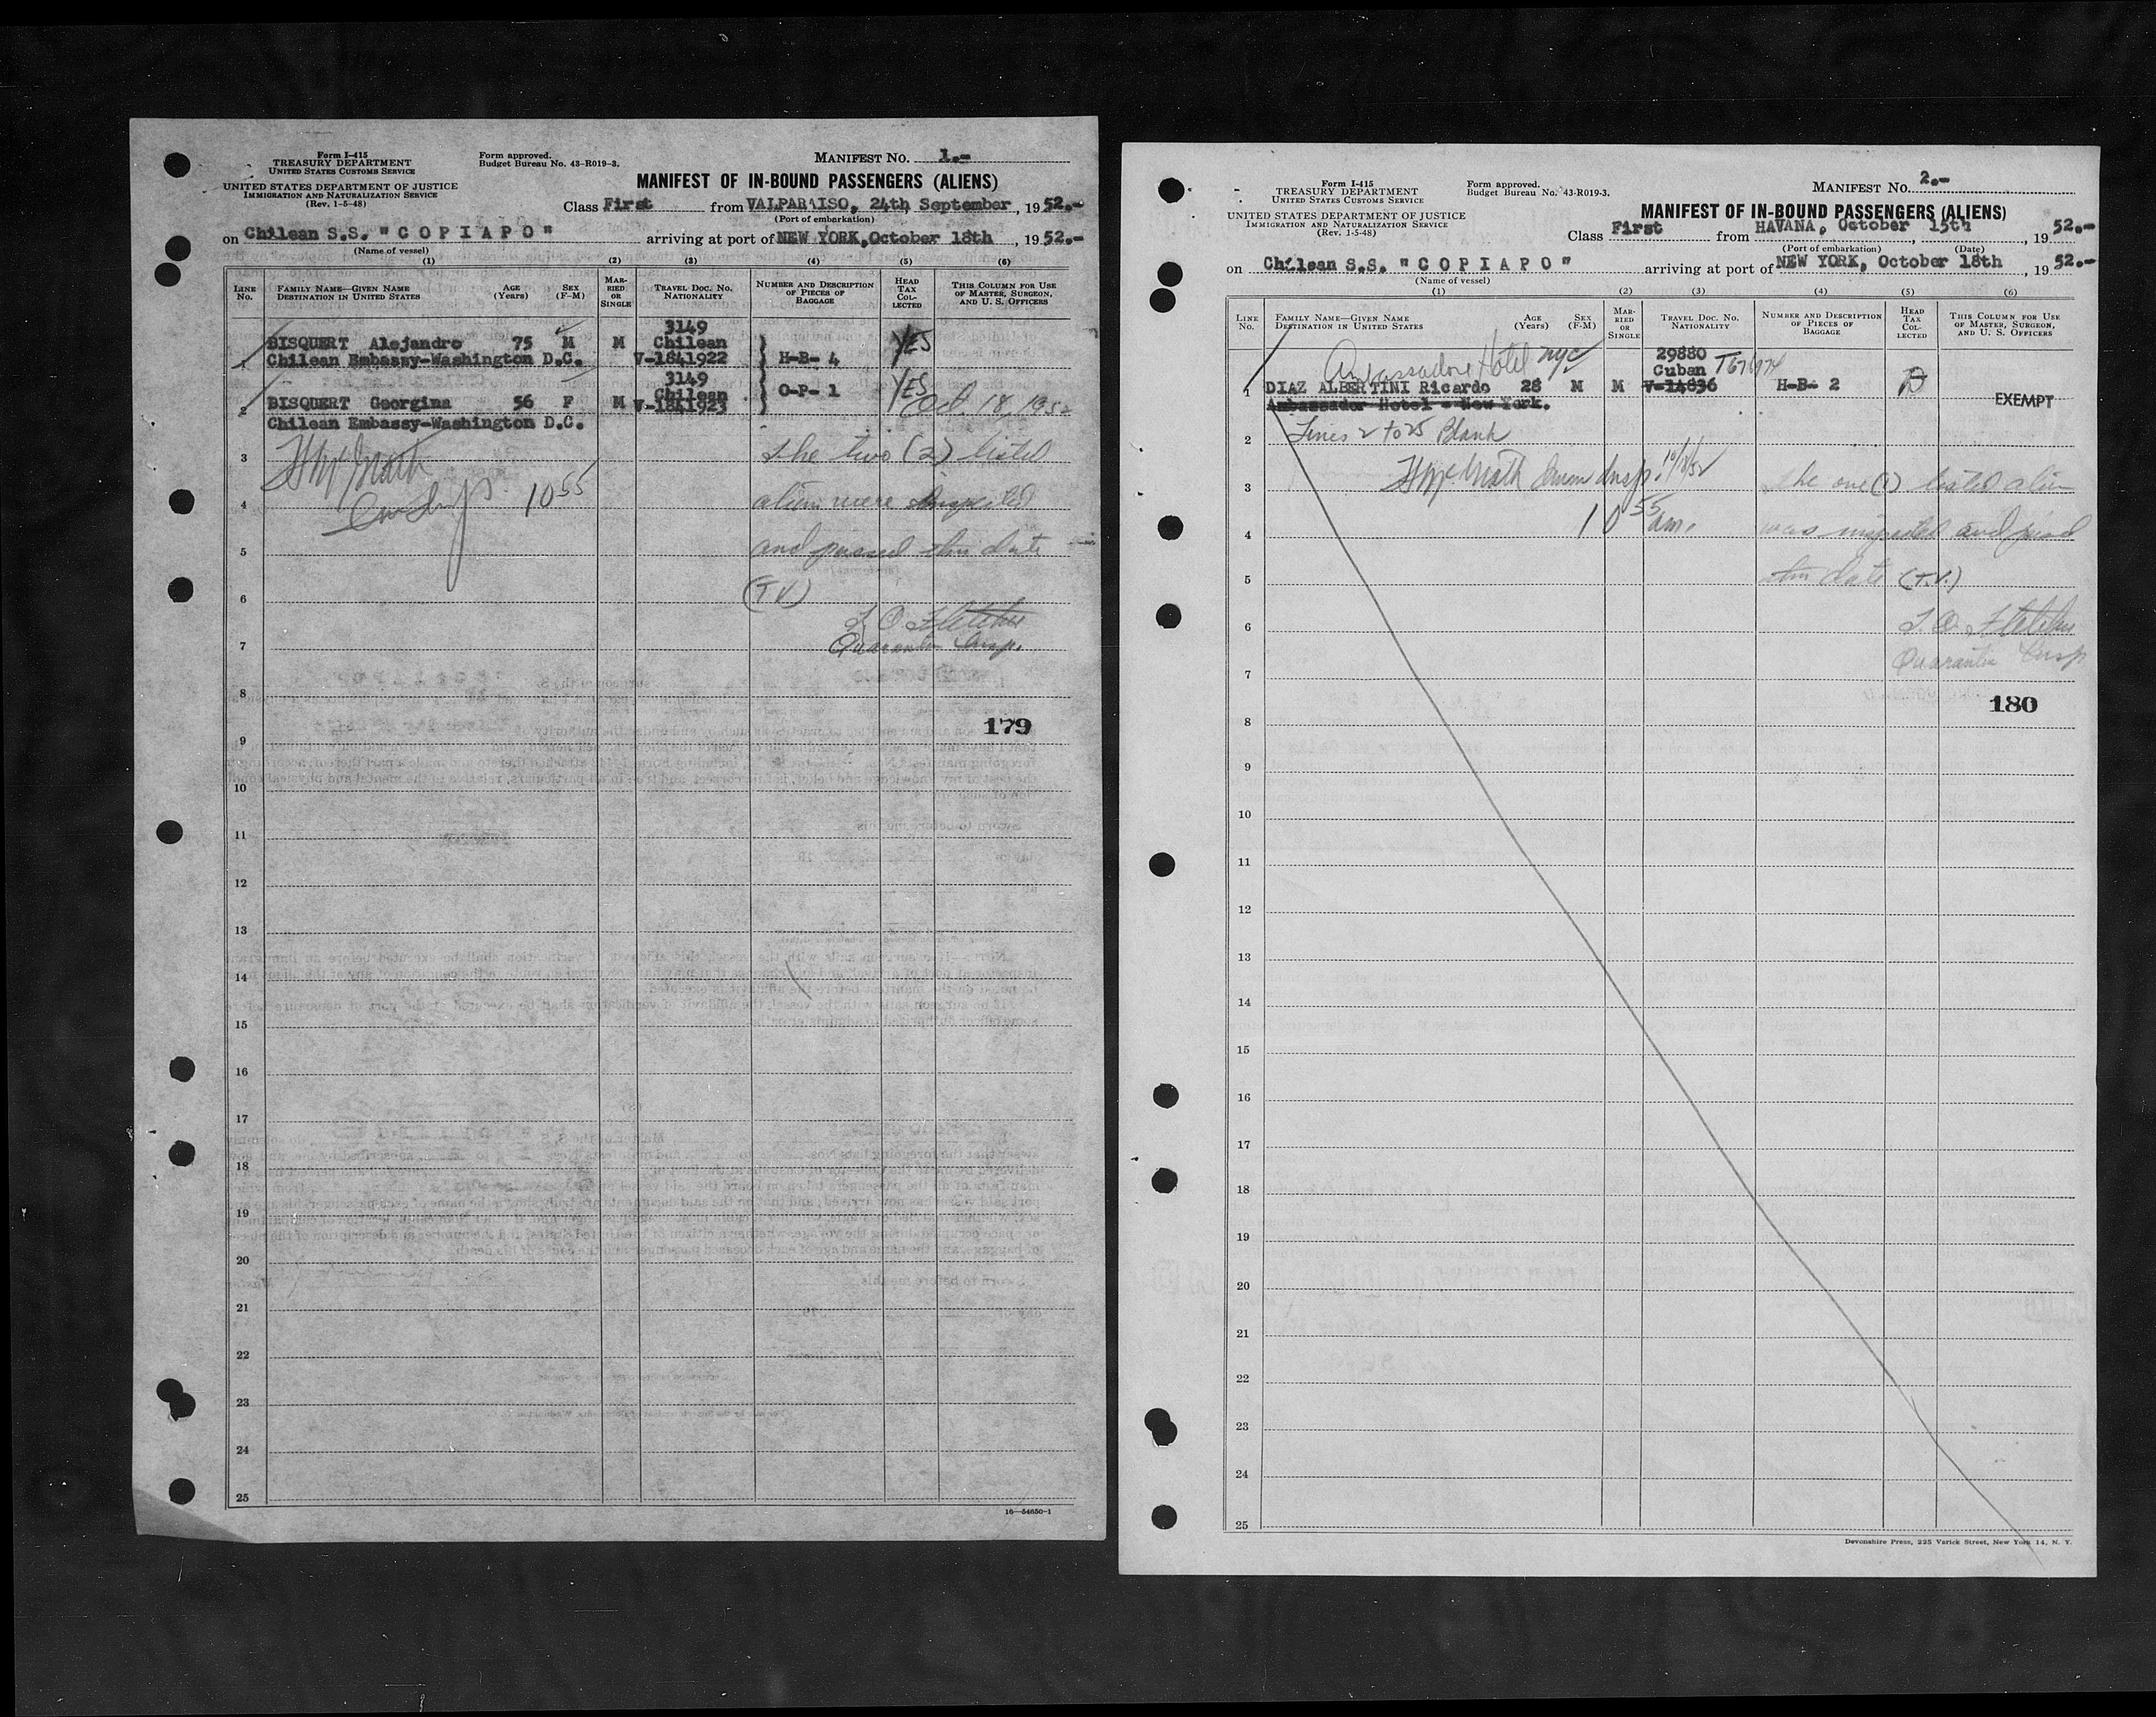 Form I-415
TREASURY DEPARTMENT
UNITED STATES CUSTOMS SERVICE
UNITED STATES DEPARTMENT OF JUSTICE
IMMIGRATION AND NATURALIZATION SERVICE
(Rev. 1-5-48)
Form approved.
Budget Bureau No. 43-R019-3.
MANIFEST No. 1.-
MANIFEST OF IN-BOUND PASSENGERS (ALIENS)
Class First from VALPARAISO, 24th September, 1952.-
(Port of embarkation)
on Chilean S.S. "COPIAPO" arriving at port of NEW YORK, October 18th, 1952.-
(Name of vessel)
(1) (2) (3) (4) (5) (6)
LINE No.
FAMILY NAME—GIVEN NAME DESTINATION IN UNITED STATES
AGE (Years)
SEX (F-M)
MARRIED OR SINGLE
TRAVEL DOC. NO. NATIONALITY
NUMBER AND DESCRIPTION OF PIECES OF BAGGAGE
HEAD TAX COLLECTED
THIS COLUMN FOR USE OF MASTER, SURGEON, AND U. S. OFFICERS
3149
1 BISQUERT Alejandro 75 M M Chilean YES
Chilean Embassy-Washington D.C. V-1841922 H-B- 4
3149
2 BISQUERT Georgina 56 F M Chilean V-1841923 O-P- 1 YES
Chilean Embassy-Washington D.C.
Oct. 18, 1952
The two (2) listed
aliens were inspected
and passed this date
(T.V.)
L. O. Fletcher
Quarantine Insp.
10 55
179
3
4
5
6
7
8
9
10
11
12
13
14
15
16
17
18
19
20
21
22
23
24
25
16—54650-1
Form I-415
TREASURY DEPARTMENT
UNITED STATES CUSTOMS SERVICE
UNITED STATES DEPARTMENT OF JUSTICE
IMMIGRATION AND NATURALIZATION SERVICE
(Rev. 1-5-48)
Form approved.
Budget Bureau No. 43-R019-3.
MANIFEST No. 2.-
MANIFEST OF IN-BOUND PASSENGERS (ALIENS)
Class First from HAVANA, October 15th, 1952.-
(Port of embarkation) (Date)
on Chilean S.S. "COPIAPO" arriving at port of NEW YORK, October 18th, 1952.-
(Name of vessel)
(1) (2) (3) (4) (5) (6)
LINE No.
FAMILY NAME—GIVEN NAME DESTINATION IN UNITED STATES
AGE (Years)
SEX (F-M)
MARRIED OR SINGLE
TRAVEL DOC. NO. NATIONALITY
NUMBER AND DESCRIPTION OF PIECES OF BAGGAGE
HEAD TAX COLLECTED
THIS COLUMN FOR USE OF MASTER, SURGEON, AND U. S. OFFICERS
Ambassador Hotel NYC
29880
Cuban
1 DIAZ ALBERTINI Ricardo 28 M M V-14836 H-B- 2
Ambassador Hotel - New York.
EXEMPT
2 Lines 2 to 25 Blank
Insp. 10/18/52
10 55 am.
The one (1) listed alien
was inspected and passed
this date (T.V.)
L. O. Fletcher
Quarantine Insp
180
3
4
5
6
7
8
9
10
11
12
13
14
15
16
17
18
19
20
21
22
23
24
25
Devonshire Press, 225 Varick Street, New York 14, N. Y.